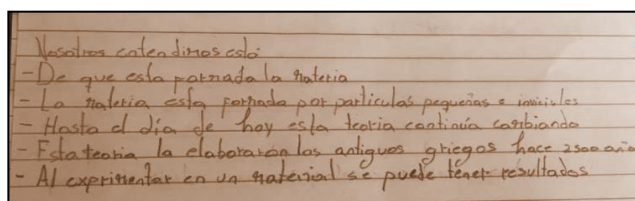 Nosotros entendimos esto:
- De que esta formada la materia
- La materia esta formada por particulas pequeñas e inviciles
- Hasta el día de hoy esta teoria continúa cambiando
- Esta teoria la elaboraron los antiguos griegos hace 2500 años
- Al experimentar en un material se puede tener resultados